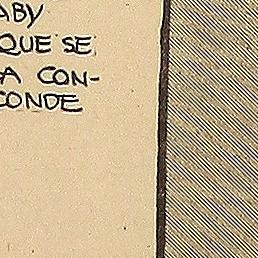 ABY
QUE SE
A CON-
CONDE